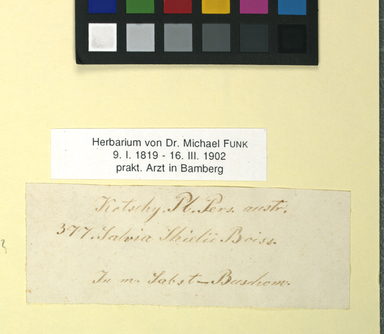 Herbarium von Dr. Michael FUNK
9. I. 1819 - 16. III. 1902
prakt. Arzt in Bamberg
Kotschy. Pl. Pers. austr.
377. Salvia Boiss.
In m. Sabst-Buschom.